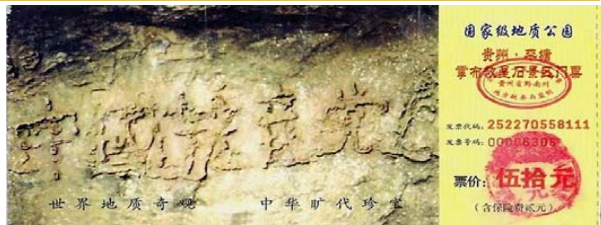 中國共産党亡
世界地质奇观 中华旷代珍宝
国家级地质公园
贵州·平塘
掌布救星石景区门票
贵州省黔南州
发票代码:252270558111
发票号码:00006306
票价:伍拾元
(含保险费贰元)